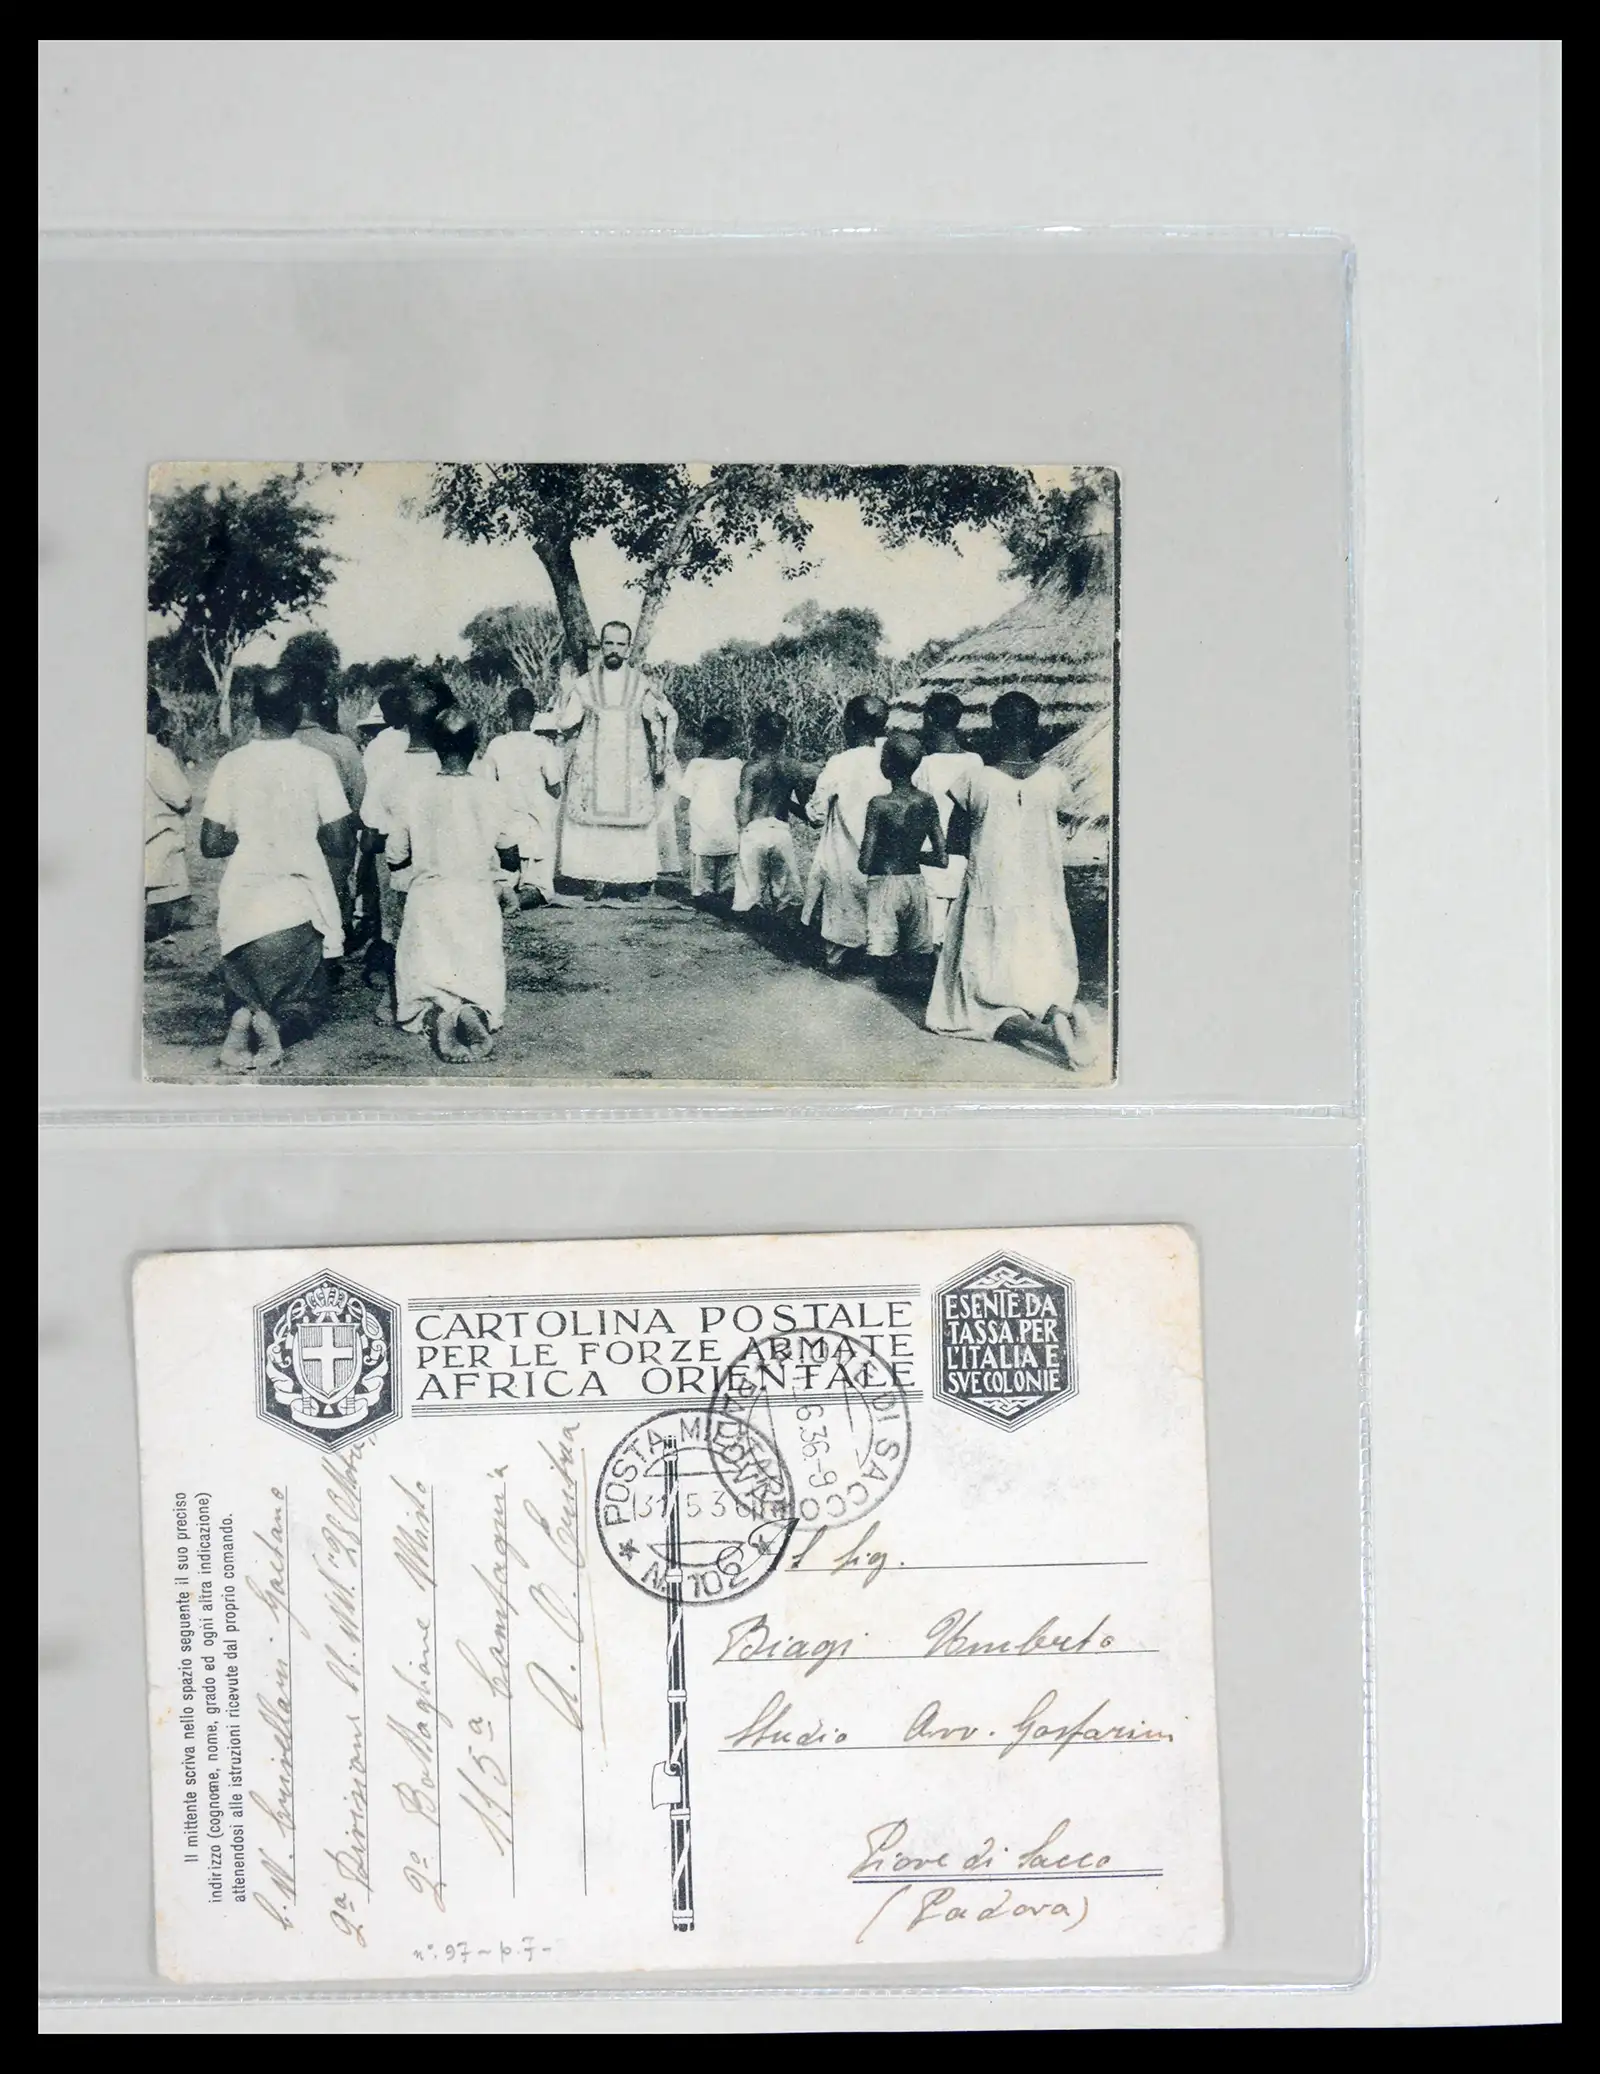 CARTOLINA POSTALE
PER LE FORZE ARMATE
AFRICA ORIENTALE
ESENTE DA
TASSA PER
L'ITALIA E
SVE COLONIE
PIOVE DI SACCO
6.36.-9
POSTA MILITARE
31 5 36
N. 102
Il mittente scriva nello spazio seguente il suo preciso
indirizzo (cognome, nome, grado ed ogni altra indicazione)
attenendosi alle istruzioni ricevute dal proprio comando.
C. N. Gaetano
2a Divisione
2o Battaglione Misto
115a Compagnia
A. O.
Sig.
Biagi Umberto
Studio Avv. Gasparini
Piove di Sacco
(Padova)
n°. 97 - p. 7 -